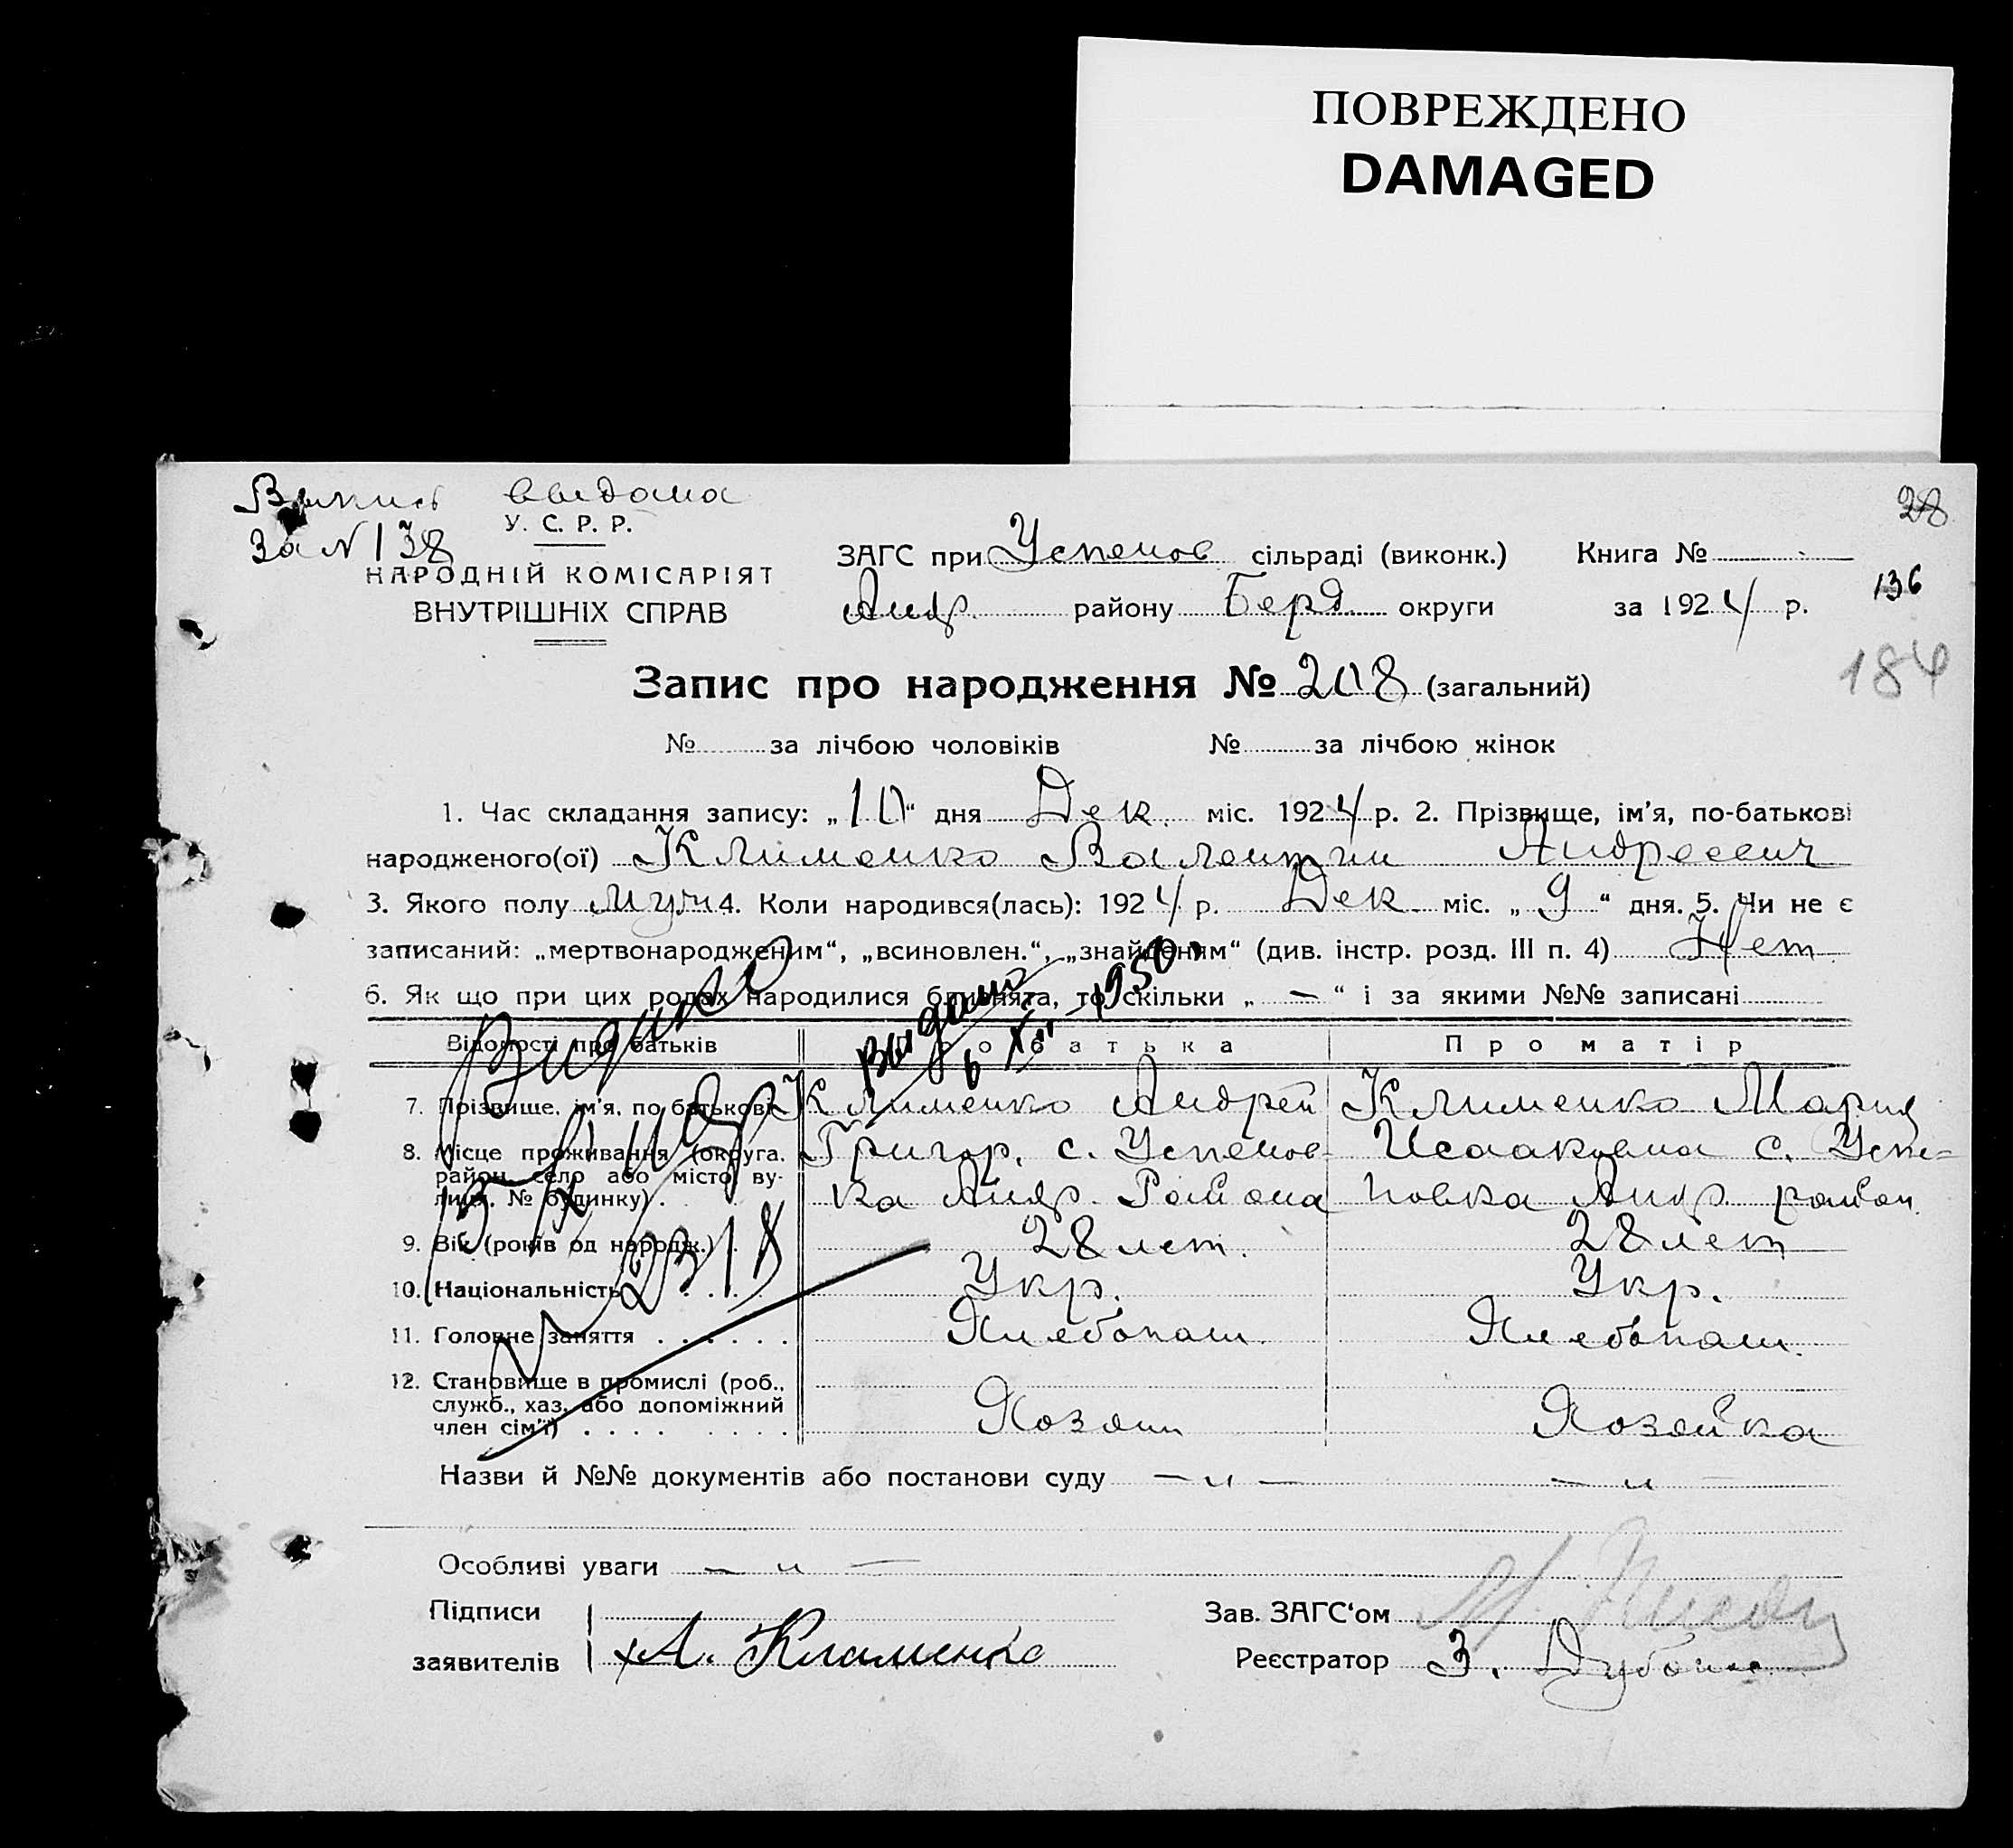 ПОВРЕЖДЕНО
DAMAGED
Выпись выдана
за № 138
У. С. Р. Р.
НАРОДНІЙ КОМІСАРІЯТ
ВНУТРІШНІХ СПРАВ
ЗАГС при Успенов сільраді (виконк.) Книга №
Андр. району Берд. округи за 1924 р.
28
136
184
Запис про народження № 208 (загальний)
№ за лічбою чоловіків № за лічбою жінок
1. Час складання запису: „10“ дня Дек. міс. 1924 р. 2. Прізвище, ім’я, по-батькові
народженого(ої) Клименко Валентин Андреевич
3. Якого полу муж 4. Коли народився(лась): 1924 р. Дек. міс. „9“ дня. 5. Чи не є
записаний: „мертвонародженим“, „всиновлен.“, „знайденям“ (див. інстр. розд. III п. 4) Нет
6. Як що при цих родах народилися близнята, то скільки „—“ і за якими №№ записані
Видано
Выдано
6 XII 1950
№ 2318
Відомості про батьків Про батька Про матір
7. Прізвище, ім’я, по батькові Клименко Андрей Клименко Мария
8. Місце проживання (округа, Григор. с. Успенов- Исааковна с. Успе=
район, село або місто, ву-
лиця, № будинку) . ка Андр. Района новка Андр. район
9. Вік (років од народж.) . 28 лет. 28 лет
10. Національність . . . . Укр. Укр.
11. Головне заняття . . . . . . Хлебопаш. Хлебопаш.
12. Становище в промислі (роб.,
служб., хаз. або допоміжний Хозяин Хозяйка
член сім’ї) . . . . . . . .
Назви й №№ документів або постанови суду — „ — — „ —
Особливі уваги — „ —
Підписи Зав. ЗАГС‘ом
заявителів А. Клименко Реєстратор З.